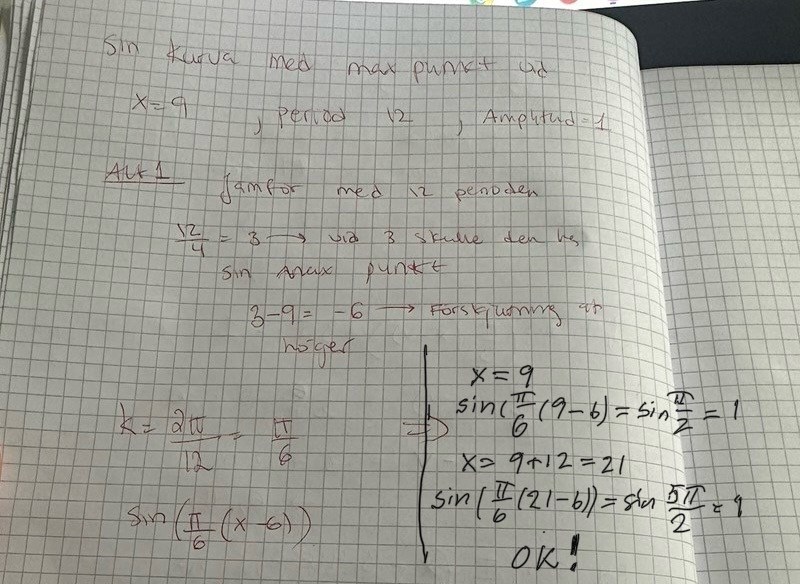 Sin kurva med max punkt vid
x=9 , period 12 , Amplitud=1
Alt 1 Jämför med 12 perioden
12/4 = 3 → vid 3 skulle den ha
sin max punkt
3-9= -6 → Förskjutning åt
höger
k = 2π/12 = π/6
sin(π/6 (x-6))
⇒
x = 9
sin(π/6 (9-6) = sin π/2 = 1
x= 9+12 = 21
sin(π/6 (21-6)) = sin 5π/2 = 1
OK!